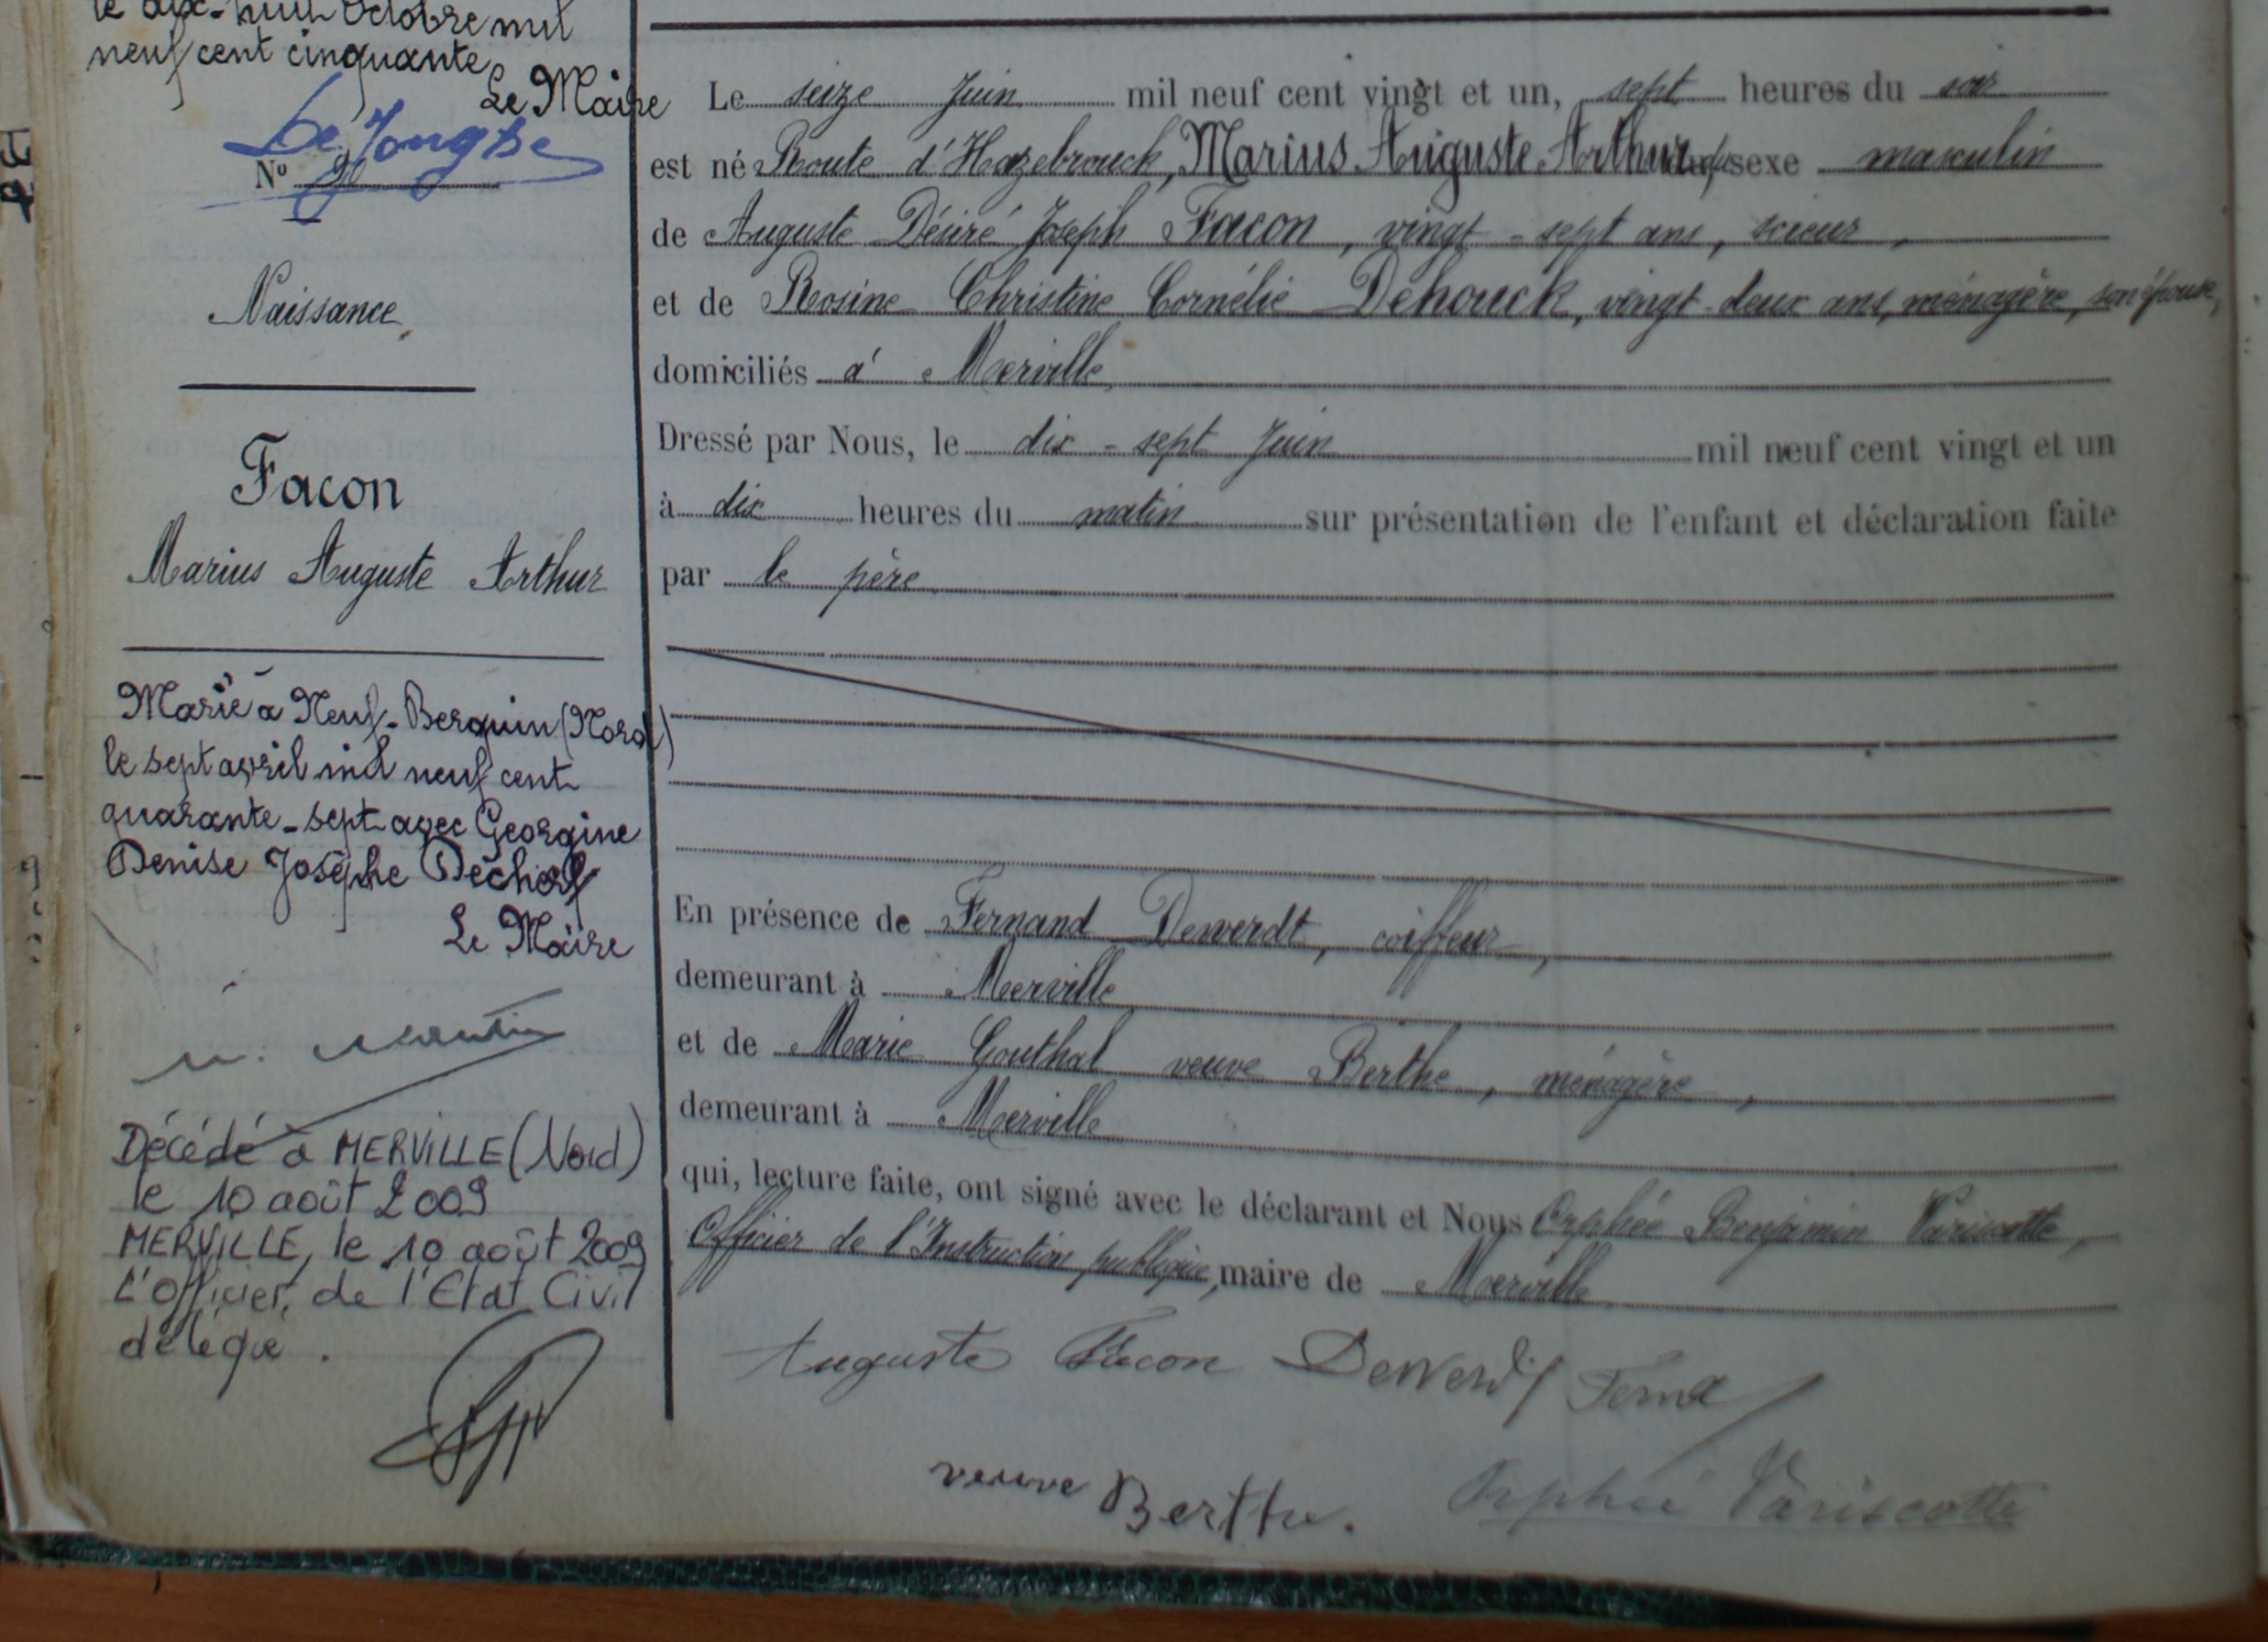 le dix-huit Octobre mil
neuf cent cinquante
Le Maire
De Jonghe
N° 90
Naissance
Facon
Marius Auguste Arthur
Marié à Neuf-Berquin (Nord)
le sept avril mil neuf cent
quarante-sept avec Georgine
Denise Josèphe Dechorf
Le Maire
Décédé à MERVILLE (Nord)
le 10 août 2009
MERVILLE, le 10 août 2009
L'Officier de l'Etat Civil
délégué.
Le seize Juin mil neuf cent vingt et un, sept heures du soir
est né Route d'Hazebrouck, Marius Auguste Arthur, du sexe masculin
de Auguste Désiré Joseph Facon, vingt-sept ans, scieur,
et de Rosine Christine Cornélie Dehouck, vingt-deux ans, ménagère, son épouse,
domiciliés à Merville
Dressé par Nous, le dix-sept Juin mil neuf cent vingt et un
à dix heures du matin sur présentation de l'enfant et déclaration faite
par le père
En présence de Fernand Dewerdt, coiffeur,
demeurant à Merville
et de Marie Gouthal veuve Berthe, ménagère,
demeurant à Merville
qui, lecture faite, ont signé avec le déclarant et Nous Orphée Benjamin Variscotte,
Officier de l'Instruction publique, maire de Merville
Auguste Facon Dewerdt Fernd
veuve Berthe.
Orphée Variscotte